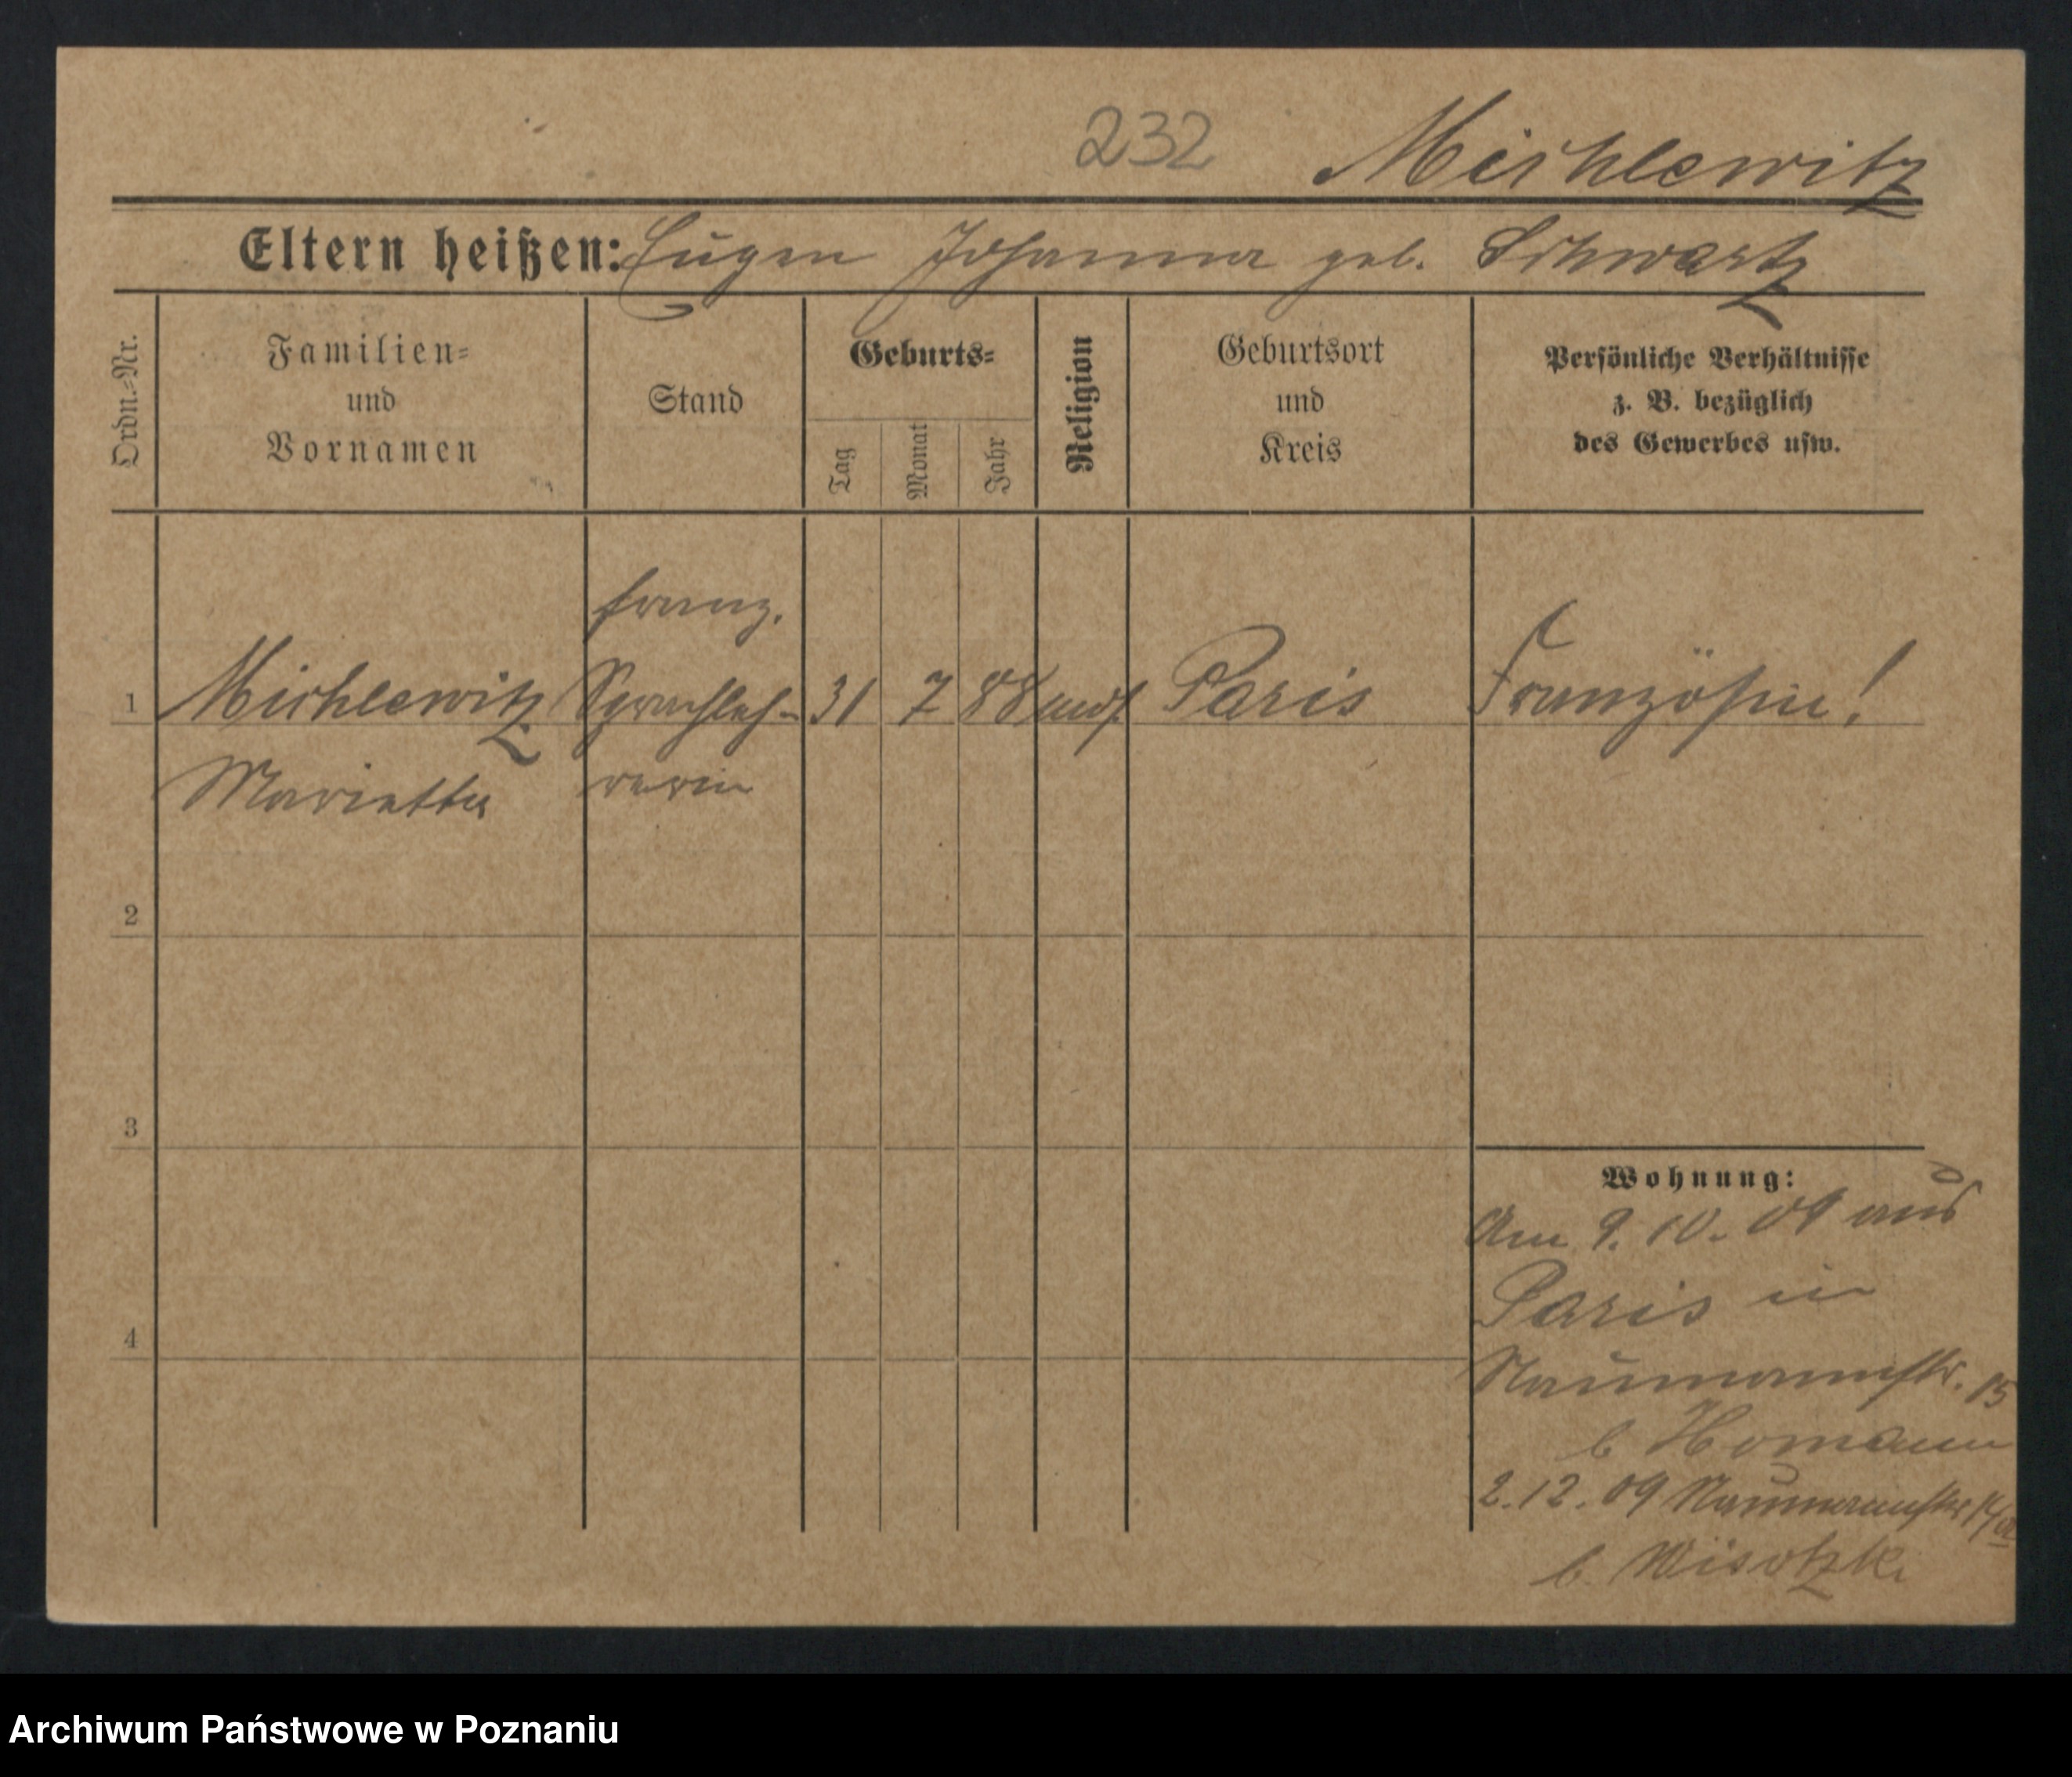 232 Michlewitz
Eltern heißen: Eugen Johanna geb. Schwartz
Ordn.-Nr.
Familien-
und
Vornamen
Stand
Geburts-
Tag
Monat
Jahr
Religion
Geburtsort
und
Kreis
Persönliche Verhältnisse
z. B. bezüglich
des Gewerbes usw.
franz.
1 Michlewitz Sprachleh- 31 7 88 Paris Französin!
Marietta rerin
2
3
4
Wohnung:
Am 9. 10. 09 aus
Paris in
Naumannstr. 15
b Homann
2. 12. 09 Naumannstr 14
b. Wisotzki
Archiwum Państwowe w Poznaniu